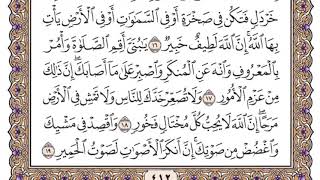 خَرْدَلٍ فَتَكُن فِى صَخْرَةٍ أَوْ فِى ٱلسَّمَٰوَٰتِ أَوْ فِى ٱلْأَرْضِ يَأْتِ
بِهَا ٱللَّهُ إِنَّ ٱللَّهَ لَطِيفٌ خَبِيرٌ ١٦ يَٰبُنَىَّ أَقِمِ ٱلصَّلَوٰةَ وَأْمُرْ
بِٱلْمَعْرُوفِ وَٱنْهَ عَنِ ٱلْمُنكَرِ وَٱصْبِرْ عَلَىٰ مَآ أَصَابَكَ إِنَّ ذَٰلِكَ
مِنْ عَزْمِ ٱلْأُمُورِ ١٧ وَلَا تُصَعِّرْ خَدَّكَ لِلنَّاسِ وَلَا تَمْشِ فِى ٱلْأَرْضِ
مَرَحًا إِنَّ ٱللَّهَ لَا يُحِبُّ كُلَّ مُخْتَالٍ فَخُورٍ ١٨ وَٱقْصِدْ فِى مَشْيِكَ
وَٱغْضُضْ مِن صَوْتِكَ إِنَّ أَنكَرَ ٱلْأَصْوَٰتِ لَصَوْتُ ٱلْحَمِيرِ ١٩
٤١٢